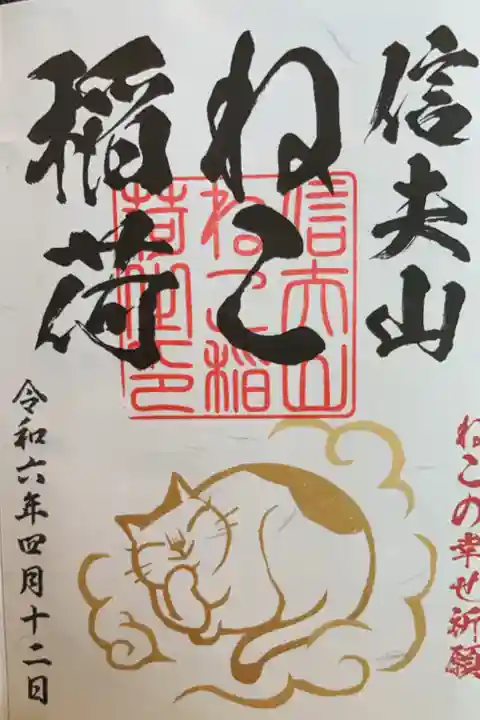 信夫山
ねこ
稲荷
信夫山
ねこ稲
荷之印
ねこの幸せ祈願
令和六年四月十二日